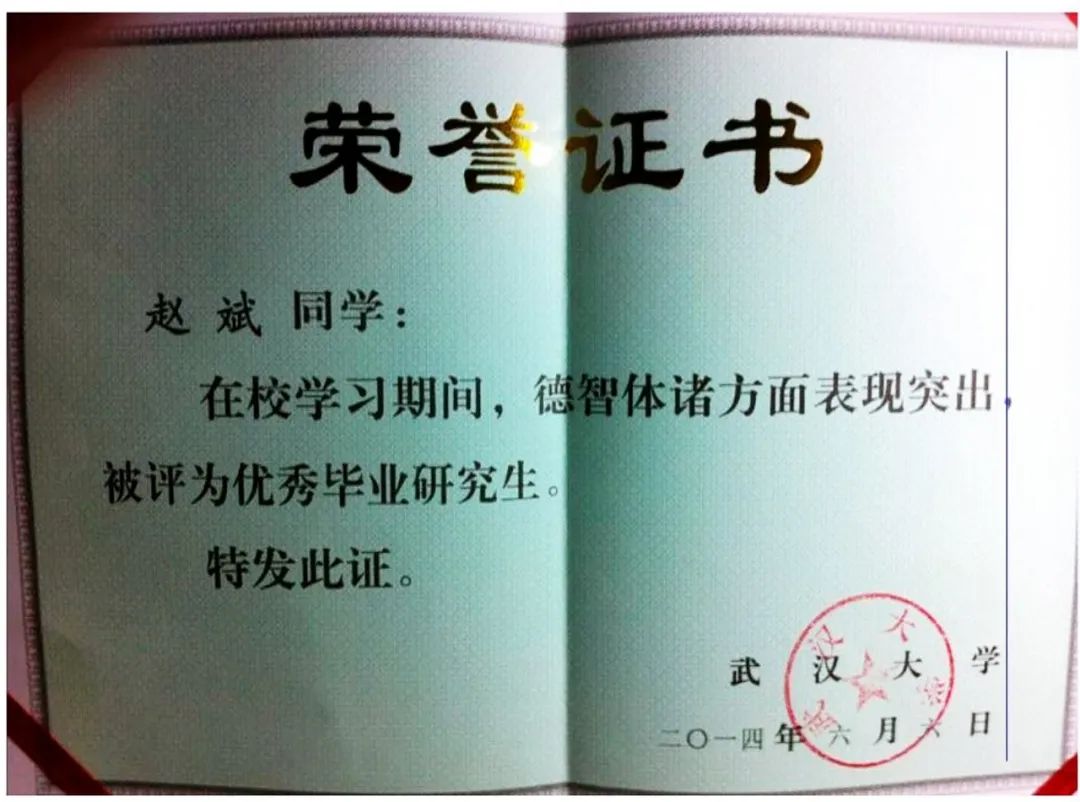 荣誉证书
赵斌同学：
在校学习期间，德智体诸方面表现突出，
被评为优秀毕业研究生。
特发此证。
武汉大学
武汉大学
二〇一四年六月六日